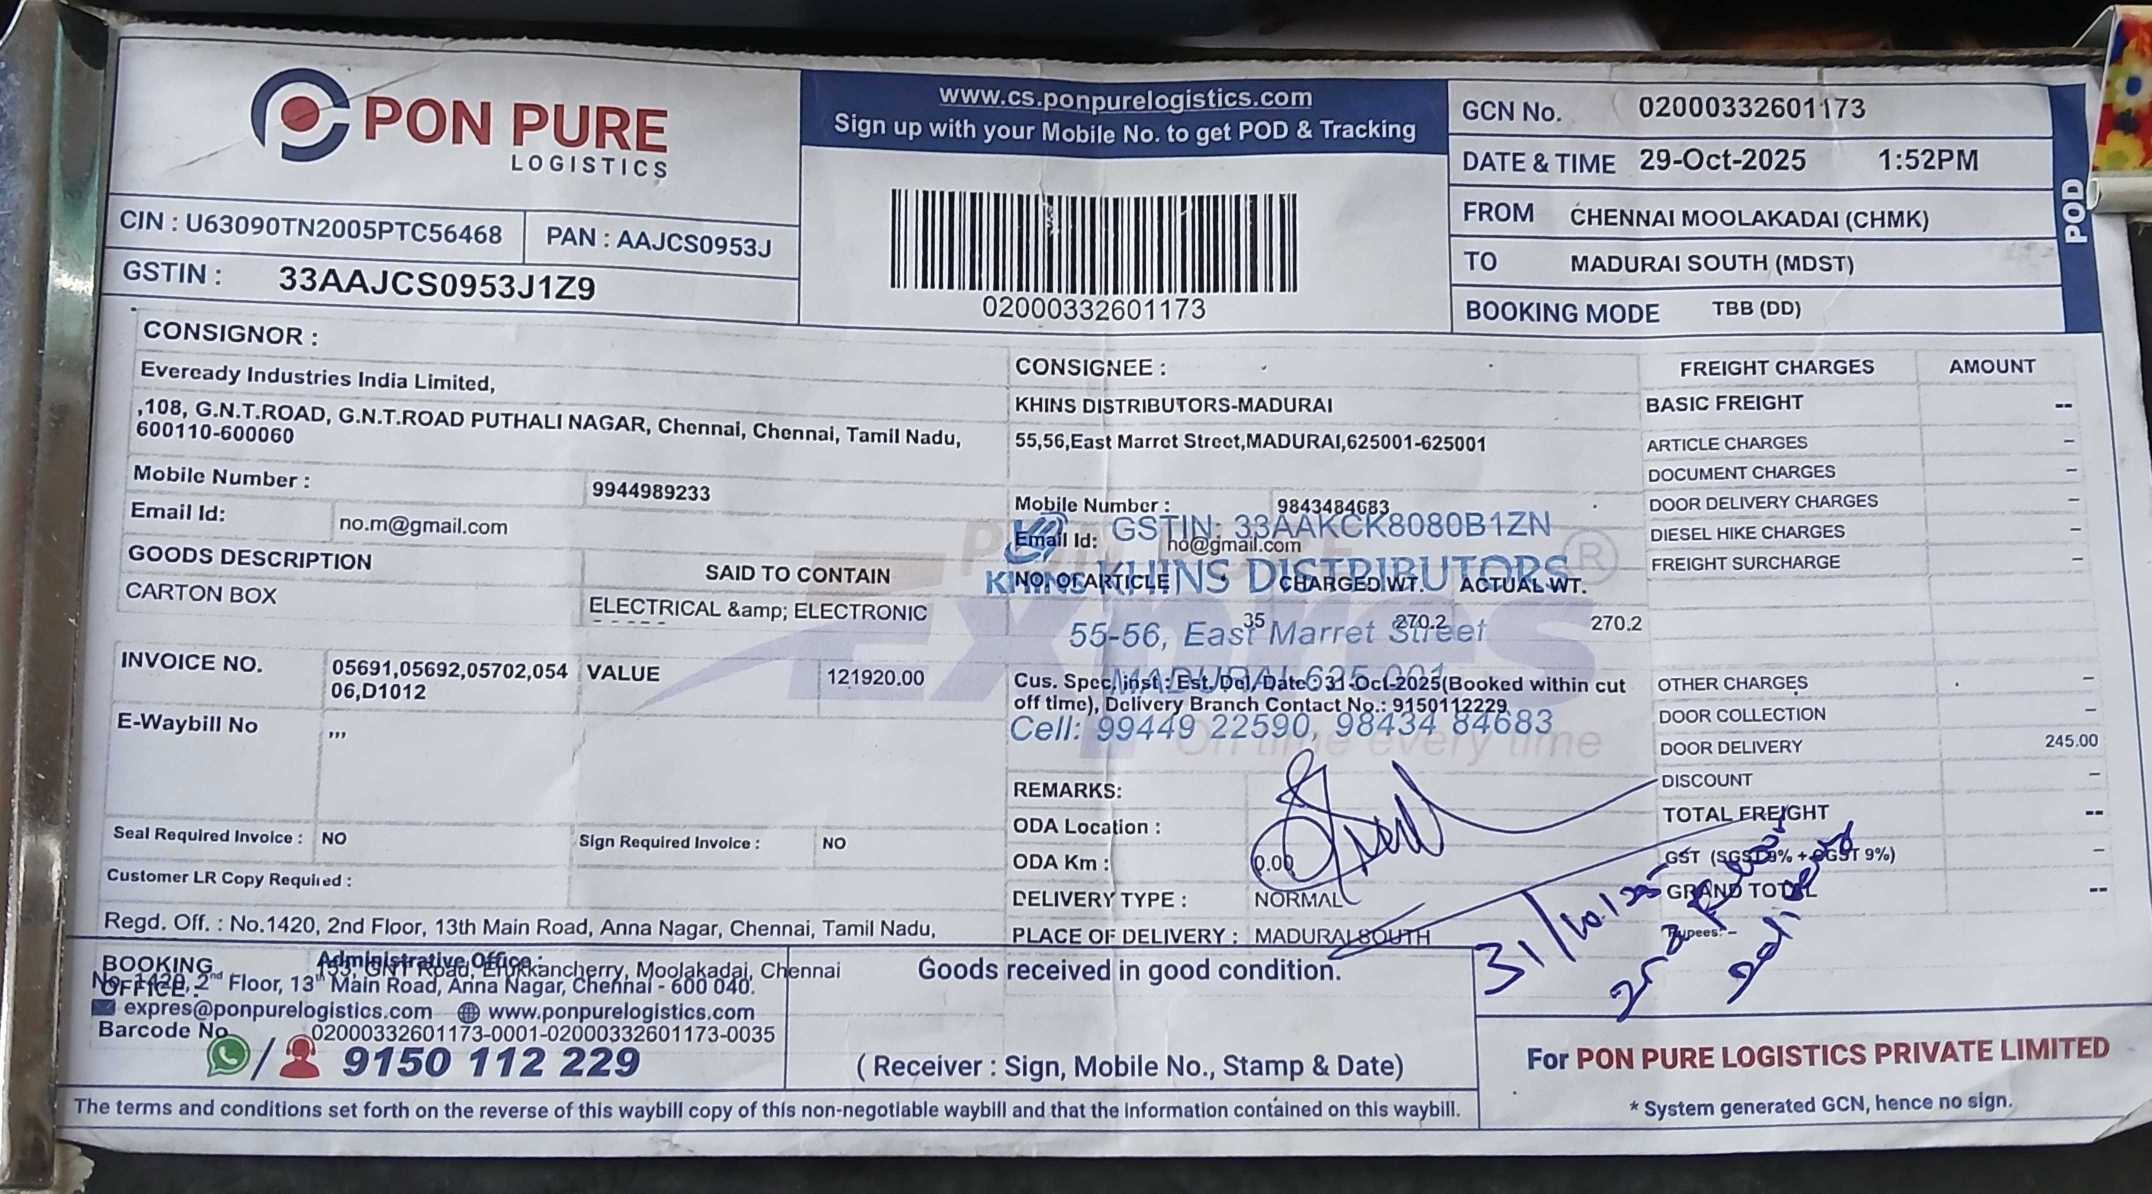 PON PURE
LOGISTICS
CIN : U63090TN2005PTC56468
PAN : AAJCS0953J
GSTIN : 33AAJCS0953J1Z9
www.cs.ponpurelogistics.com
Sign up with your Mobile No. to get POD & Tracking
02000332601173
GCN No. 02000332601173
DATE & TIME 29-Oct-2025 1:52PM
FROM CHENNAI MOOLAKADAI (CHMK)
TO MADURAI SOUTH (MDST)
BOOKING MODE TBB (DD)
POD
CONSIGNOR :
Eveready Industries India Limited,
,108, G.N.T.ROAD, G.N.T.ROAD PUTHALI NAGAR, Chennai, Chennai, Tamil Nadu,
600110-600060
Mobile Number : 9944989233
Email Id: no.m@gmail.com
GOODS DESCRIPTION SAID TO CONTAIN
CARTON BOX ELECTRICAL &amp; ELECTRONIC
INVOICE NO. 05691,05692,05702,054
06,D1012
VALUE 121920.00
E-Waybill No ,,,
Seal Required Invoice : NO Sign Required Invoice : NO
Customer LR Copy Required :
Regd. Off. : No.1420, 2nd Floor, 13th Main Road, Anna Nagar, Chennai, Tamil Nadu,
CONSIGNEE :
KHINS DISTRIBUTORS-MADURAI
55,56,East Marret Street,MADURAI,625001-625001
Mobile Number : 9843484683
GSTIN: 33AAKCK8080B1ZN
Email Id: no@gmail.com
KHINS DISTRIBUTORS
NO. OF ARTICLE CHARGED WT. ACTUAL WT.
35 270.2 270.2
55-56, East Marret Street
Cus. Spec. inst : Est. Del. Date : 31-Oct-2025(Booked within cut
off time), Delivery Branch Contact No.: 9150112229
Cell: 99449 22590, 98434 84683
Expres
On time every time
REMARKS:
ODA Location :
ODA Km : 0.00
DELIVERY TYPE : NORMAL
PLACE OF DELIVERY : MADURAI SOUTH
FREIGHT CHARGES AMOUNT
BASIC FREIGHT --
ARTICLE CHARGES –
DOCUMENT CHARGES –
DOOR DELIVERY CHARGES –
DIESEL HIKE CHARGES –
FREIGHT SURCHARGE –
OTHER CHARGES –
DOOR COLLECTION –
DOOR DELIVERY 245.00
DISCOUNT –
TOTAL FREIGHT --
GST (SGST 9% + CGST 9%) –
GRAND TOTAL --
Rupees: –
31/10/25
2nd Floor
delivery
BOOKING
OFFICE :
Administrative Office :
153, GNT Road, Erukkancherry, Moolakadai, Chennai
No. 1420, 2nd Floor, 13th Main Road, Anna Nagar, Chennai - 600 040.
expres@ponpurelogistics.com www.ponpurelogistics.com
Barcode No 02000332601173-0001-02000332601173-0035
/ 9150 112 229
Goods received in good condition.
( Receiver : Sign, Mobile No., Stamp & Date)
For PON PURE LOGISTICS PRIVATE LIMITED
* System generated GCN, hence no sign.
The terms and conditions set forth on the reverse of this waybill copy of this non-negotiable waybill and that the information contained on this waybill.